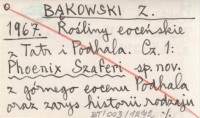 BĄKOWSKI Z.
1967. Rośliny eoceńskie
z Tatr i Podhala. Cz. 1:
Phoenix Szaferi sp. nov.
z górnego eocenu Podhala
oraz zarys historii rodzaju
BT/003/1292 ·/.